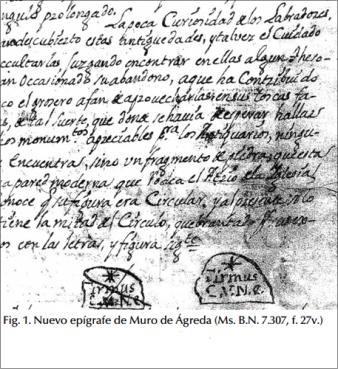 nguis prolongado.
La poca Curiosidad de los Labradores,
descubierto estas antiguedades, y talvez el Cuidado
ocultarlas, Juzgando encontrar en ellas algun theso-
an Ocasionado su abandono, a que ha Contribuido
co el grosero afan de aprovecharlas en sus toscas fa-
s, de tal suerte, que donde se havia de esperar hallar
monumtos apreciables pra los Antiquarios, ningu-
Encuentras, sino un fragmento de piedra, que esta
pared moderna que rodea el Atrio de la Iglesia
noce q. su figura era Circular, y al presente solo
tiene la mitad del Circulo, quebrantado
con las letras, y figura sigte
Tirmus
CA.N.C.
Tirmus
CA.N.C.
Fig. 1. Nuevo epígrafe de Muro de Ágreda (Ms. B.N. 7.307, f. 27v.)